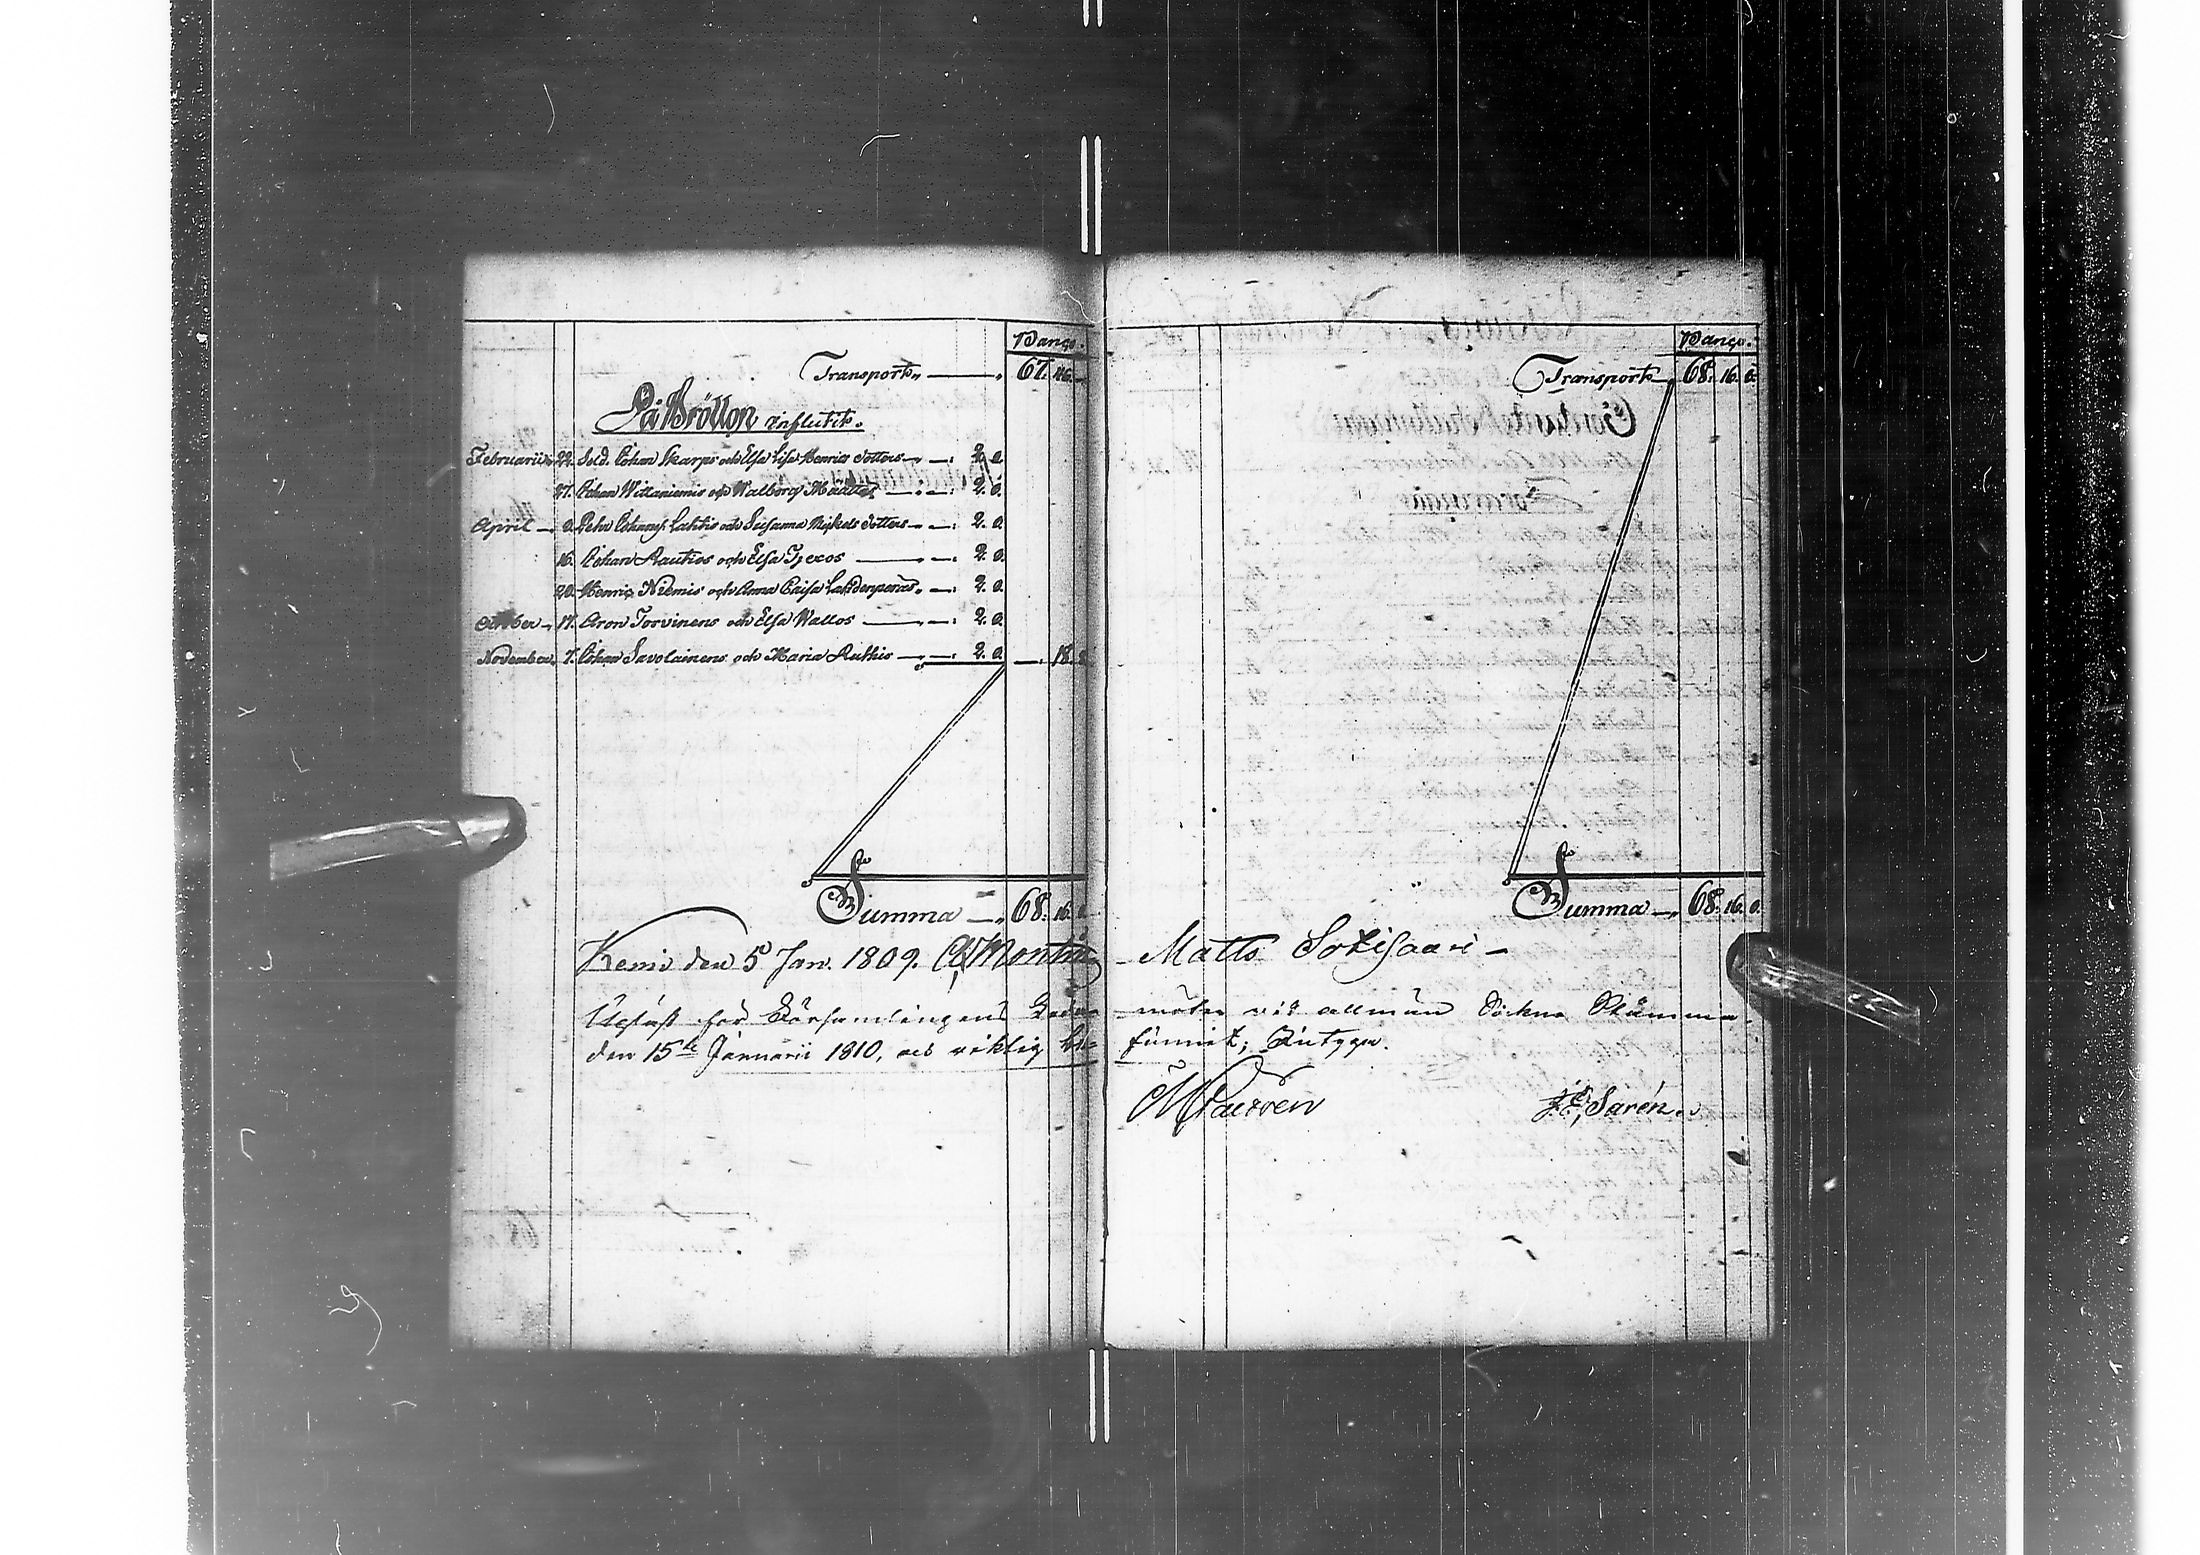 Banço.
Transport, — 67. 46. —
På Bröllon influtit.
Februarii 22. Sold. Johan Skarps och Elsa Lisa Henrics dotters — 2. 0.
27. Johan Wittaniemis och Walborg Määttes — 2. 0.
April — 9. Pehr Johans. Lahtis och Susanna Mickels dotters — 2. 0.
16. Johan Rautios och Elsa — 2. 0.
20. Henric Niemis och Anna Caisa — 2. 0.
October — 17. Aron Torvinens och Elsa Wallos — 2. 0.
November 7. Johan Savolainens och Maria — 2. 0. — 18.
Summa — 68. 16. 0.
Kemi den 5 Jan. 1809.
Upläst för Församlingens
den 15de Januarii 1810, och riktig be-
Banço.
Transport — 68. 16. 0.
Summa — 68. 16. 0.
Matts Sotisaari —
möter vid allmän Sockne Stämma
funnit; Intyga.
Saren